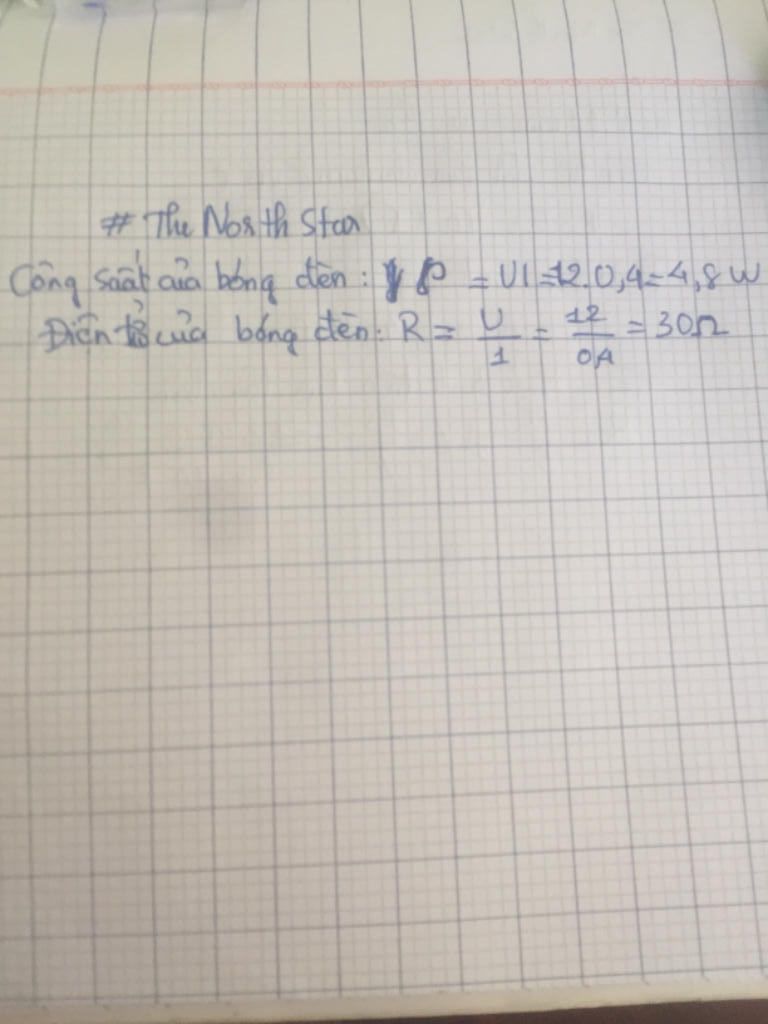 # The North Star
Công suất của bóng đèn: P = UI = 12.0,4 = 4,8 W
Điện trở của bóng đèn: R = U/I = 12/0,4 = 30Ω